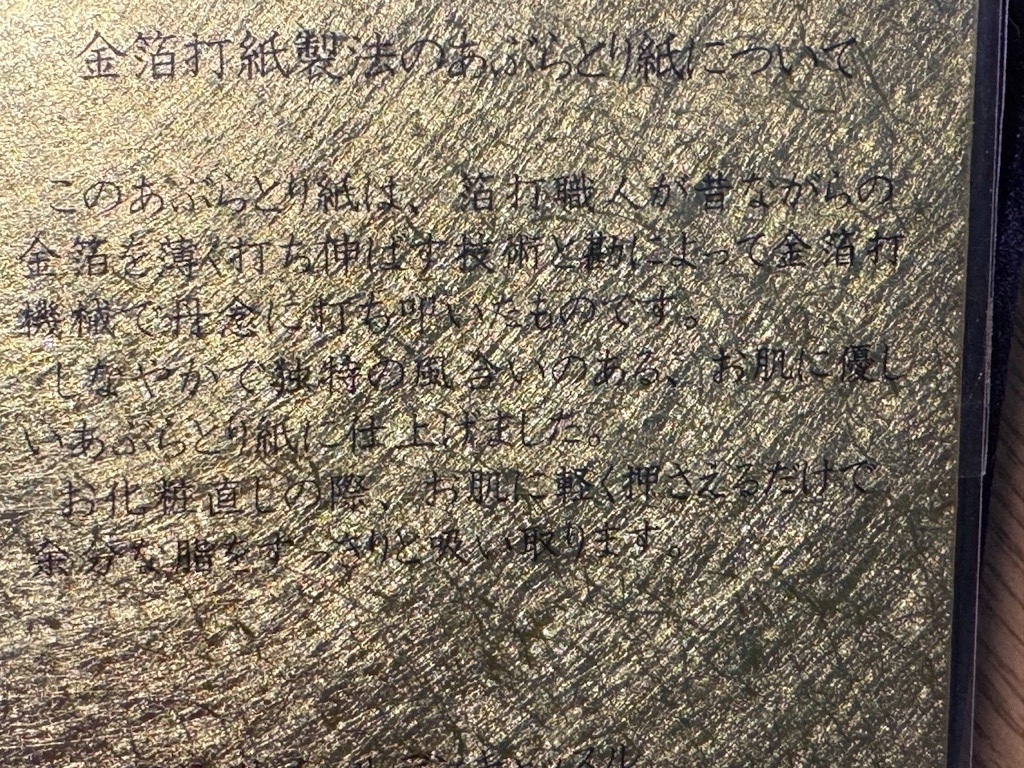 金箔打紙製法のあぶらとり紙について
このあぶらとり紙は、箔打職人が昔ながらの
金箔を薄く打ち伸ばす技術と勘によって金箔打
機械で丹念に打ち叩いたものです。
しなやかで独特の風合いのある、お肌に優し
いあぶらとり紙に仕上げました。
お化粧直しの際、お肌に軽く押さえるだけで
余分な脂をすっきりと吸い取ります。